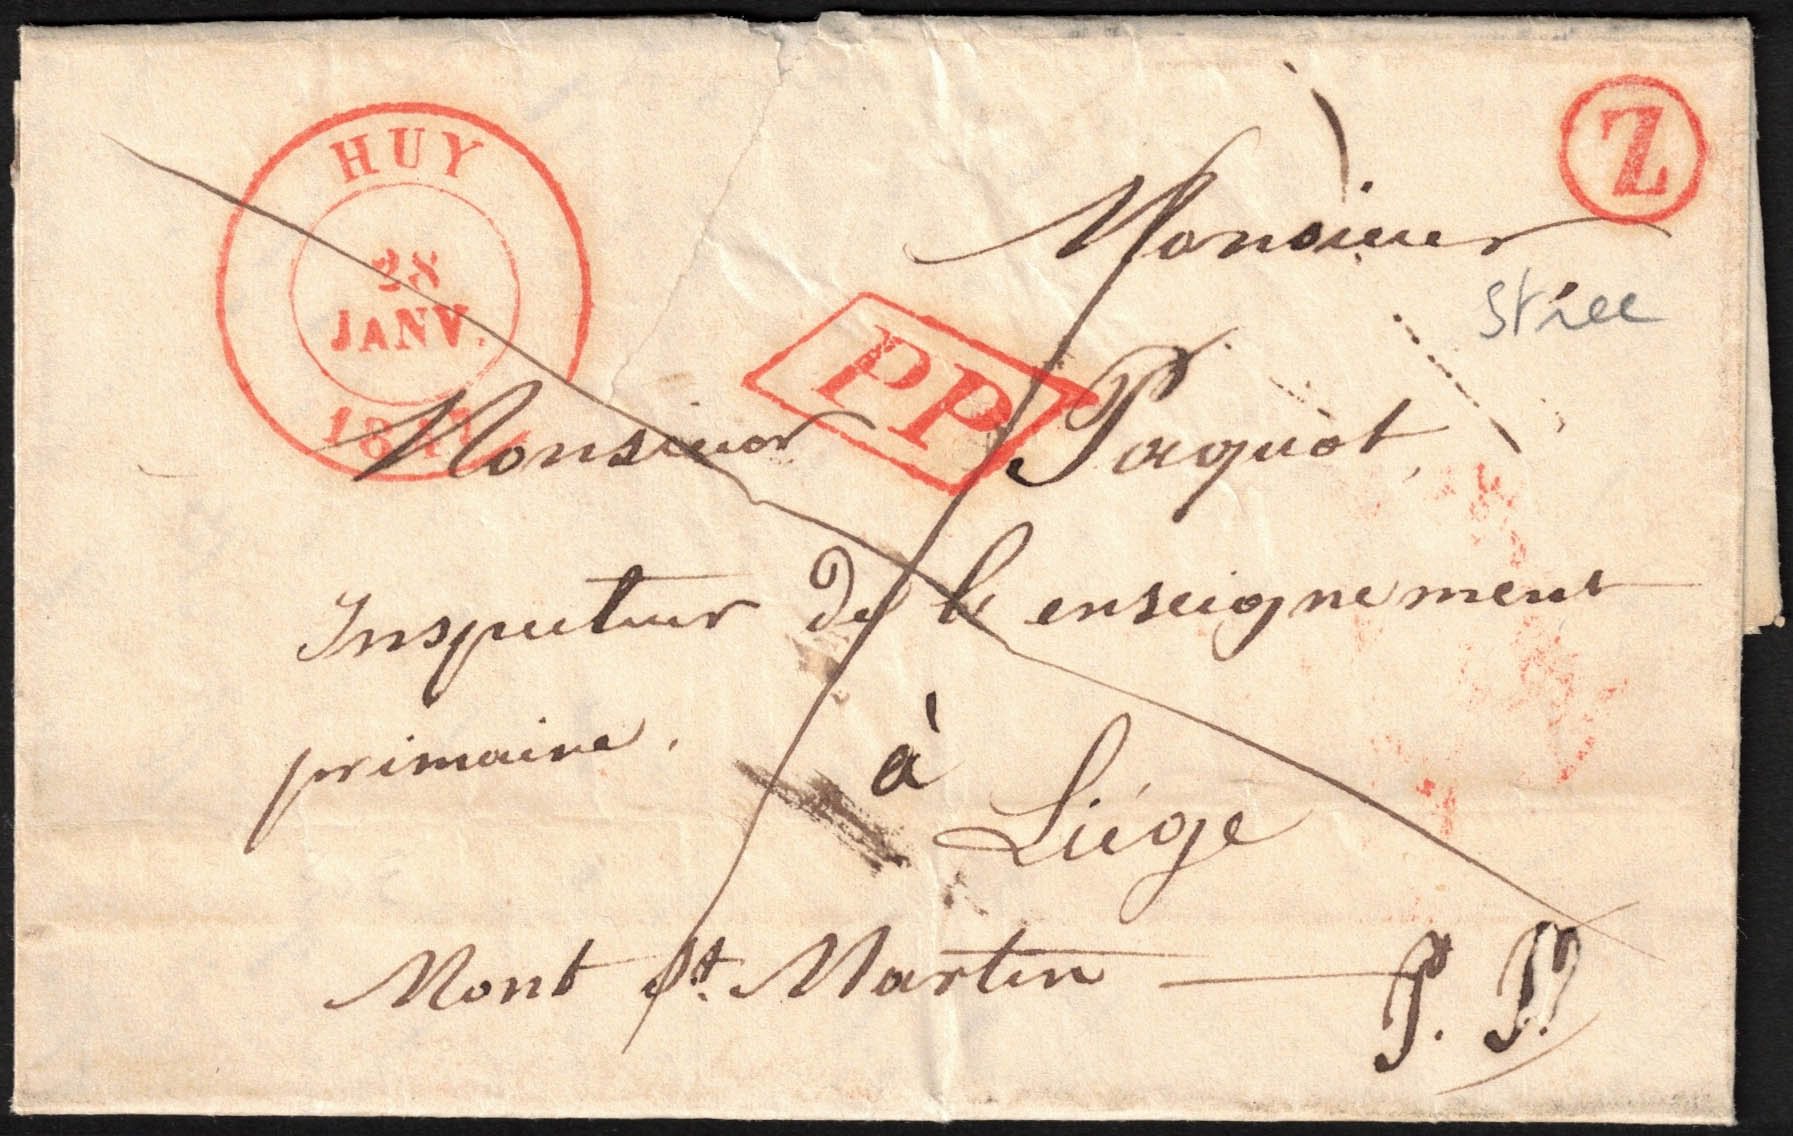 HUY
28
JANV.
Z
Monsieur
Strée
PP
Monsieur Paquot,
Inspecteur de l'enseignement
primaire.
à
Liége
Mont St. Martin — P. P.